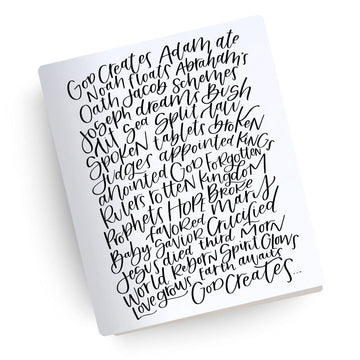 GOD CREATES ADAM ate
NOAH FLOATS ABRAHAM'S
Oath JACOB SCHEMES
JOSEPH DREAMS BUSH
AFLAME SEA SPLIT LAW
SPOKEN TABLETS BROKEN
JUDGES APPOINTED KINGS
ANOINTED GOD FORGOTTEN
RULERS ROTTEN KINGDOM
PROPHETS HOPE BROKE
FAVORED MARY
BABY SAVIOR CRUCIFIED
JESUS DIED THIRD MORN
WORLD REBORN SPIRIT GLOWS
LOVE GROWS EARTH AWAITS
GOD CREATES...